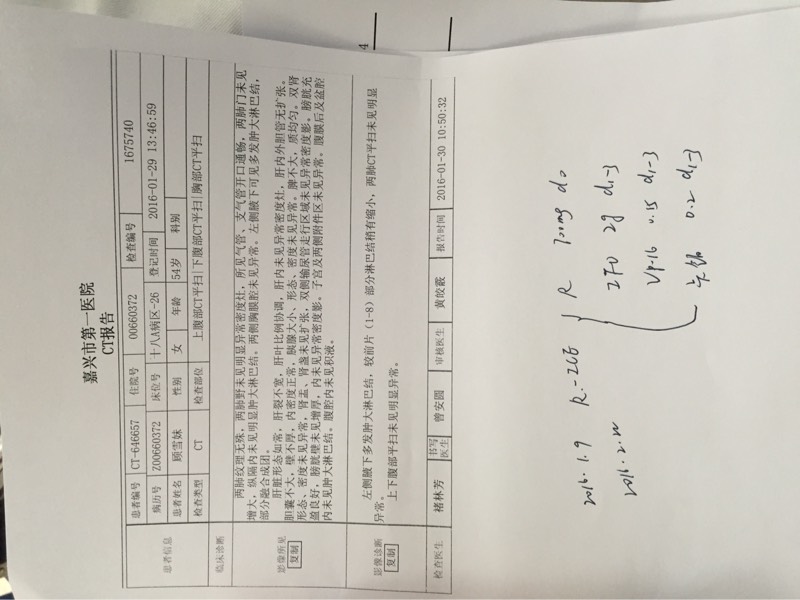 嘉兴市第一医院
CT报告
患者信息 患者编号 CT-646657 住院号 00660372 检查编号 1675740
病历号 Z00660372 床位号 十八A病区-26 登记时间 2016-01-29 13:46:59
患者姓名 顾雪妹 性别 女 年龄 54岁 科别
检查类型 CT 检查部位 上腹部CT平扫|下腹部CT平扫|胸部CT平扫
临床诊断
影像所见
复制
两肺纹理无殊,两肺野未见明显异常密度灶,所见气管、支气管开口通畅,两肺门未见
增大,纵隔内未见明显肿大淋巴结。两侧胸膜腔未见异常。左侧腋下可见多发肿大淋巴结,
部分融合成团。
肝脏形态如常,肝裂不宽,肝叶比例协调,肝内未见异常密度灶,肝内外胆管无扩张。
胆囊不大,壁不厚,内密度正常,胰腺大小、形态、密度未见异常。脾不大,质均匀。双肾
形态、密度未见异常,肾盂、肾盏未见扩张,双侧输尿管走行区域未见异常密度影。膀胱充
盈良好,膀胱壁未见增厚,内未见异常密度影。子宫及两侧附件区未见异常。腹膜后及盆腔
内未见肿大淋巴结。腹腔内未见积液。
影像诊断
复制
左侧腋下多发肿大淋巴结,较前片(1-8)部分淋巴结稍有缩小,两肺CT平扫未见明显
异常。
上下腹部平扫未见明显异常。
检查医生 褚林芳 书写医生 曾安圆 审核医生 黄皎霰 报告时间 2016-01-30 10:50:32
2016. 1. 9 R-ICE R 700mg d0
2016. 2. IFO 2g d1-3
Vp-16 0.15 d1-3
0.2 d1-3